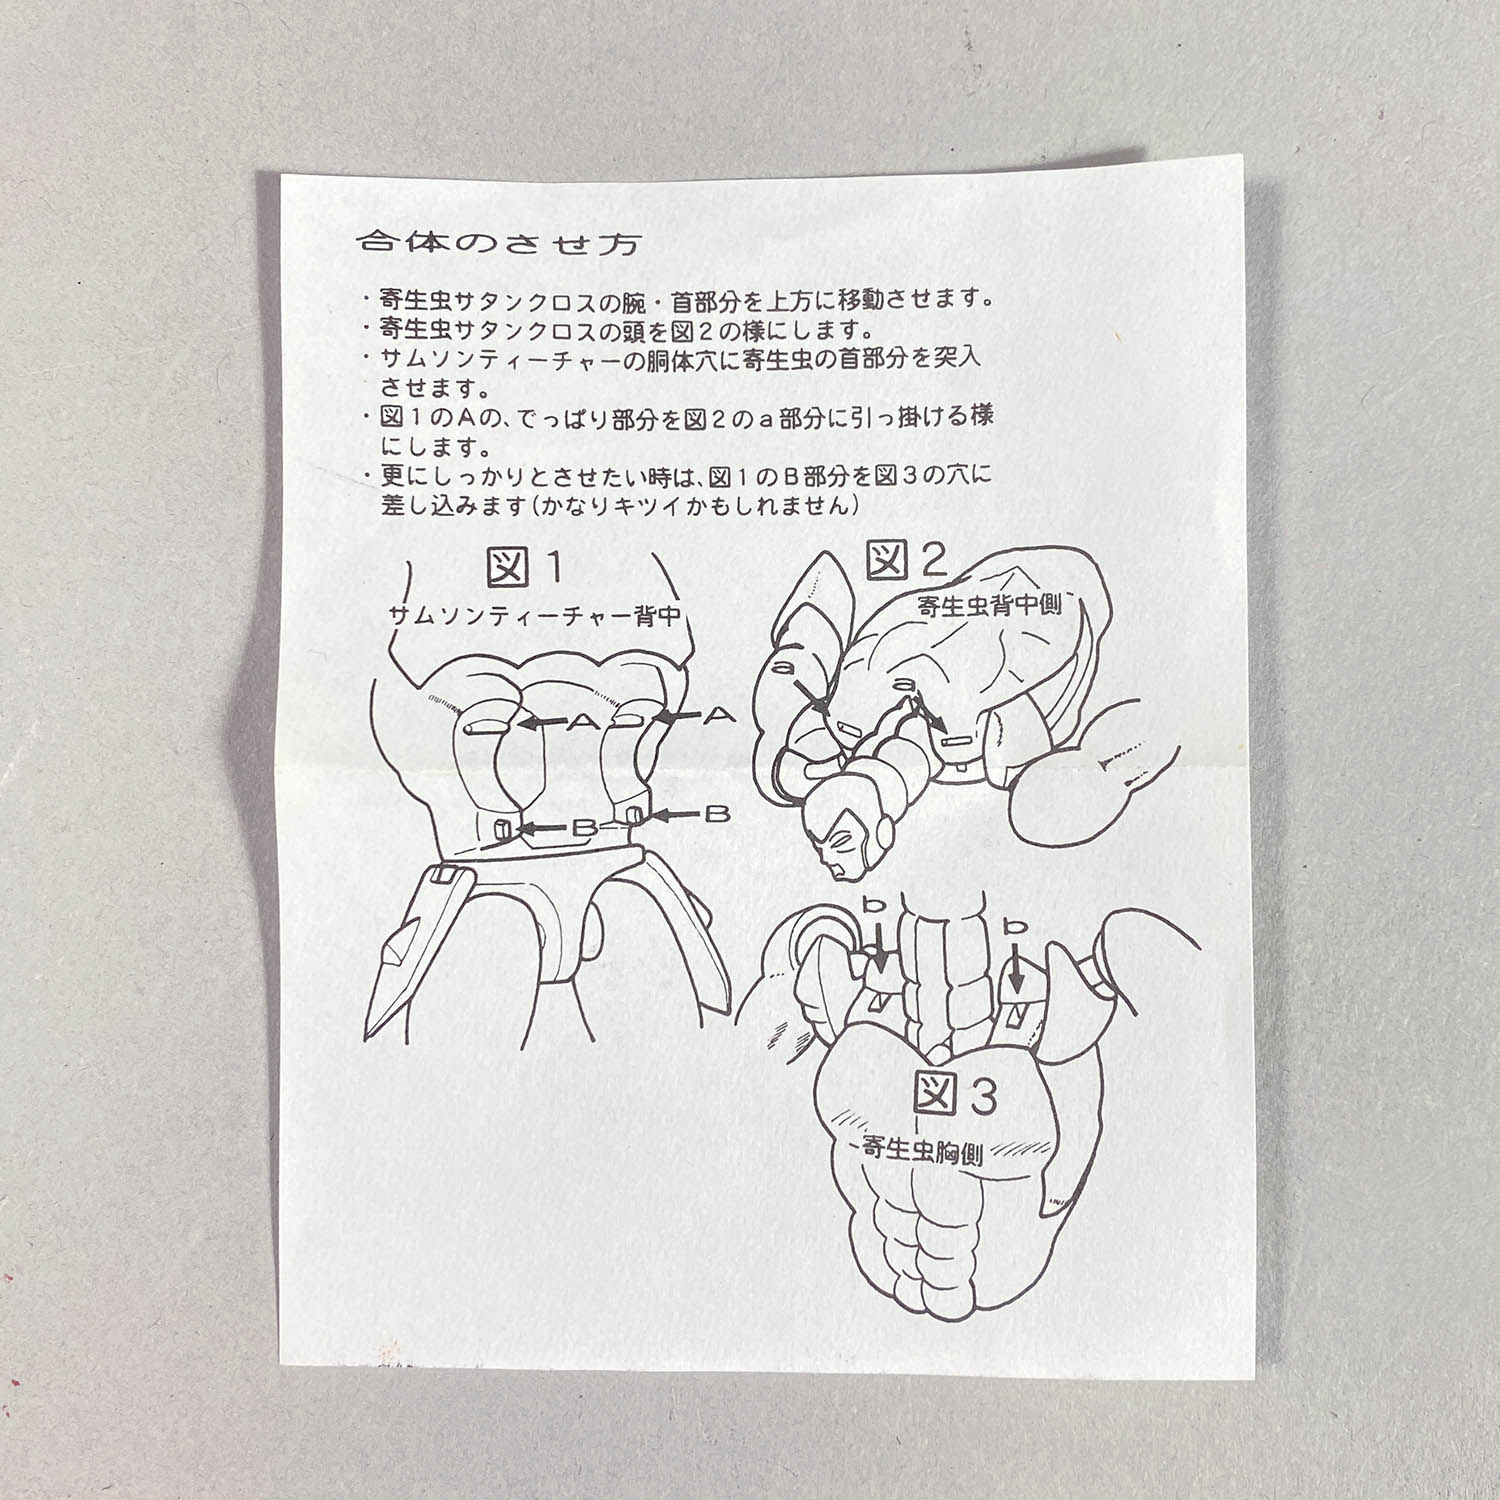 合体のさせ方
・寄生虫サタンクロスの腕・首部分を上方に移動させます。
・寄生虫サタンクロスの頭を図2の様にします。
・サムソンティーチャーの胴体穴に寄生虫の首部分を突入
させます。
・図1のAの、でっぱり部分を図2のa部分に引っ掛ける様
にします。
・更にしっかりとさせたい時は、図1のB部分を図3の穴に
差し込みます(かなりキツイかもしれません)
図1
サムソンティーチャー背中
A
A
B
B
図2
寄生虫背中側
a
a
b
b
図3
寄生虫胸側